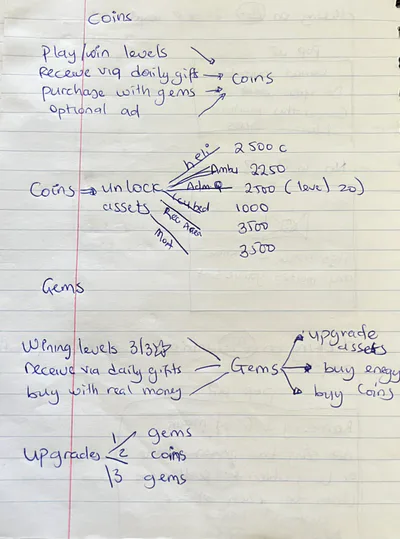 Coins
Play/win levels
Receive via daily gifts → coins
purchase with gems
optional ad
heli 2500 c
Ambu 2250
Coins ⇒ unlock
assets
2500 (level 20)
1000
Rec Area 3500
3500
Gems
Wining levels 3/3
Receive via daily gifts
buy with real money
Gems
upgrade
assets
buy energy
buy coins
upgrades
1 gems
2 coins
3 gems